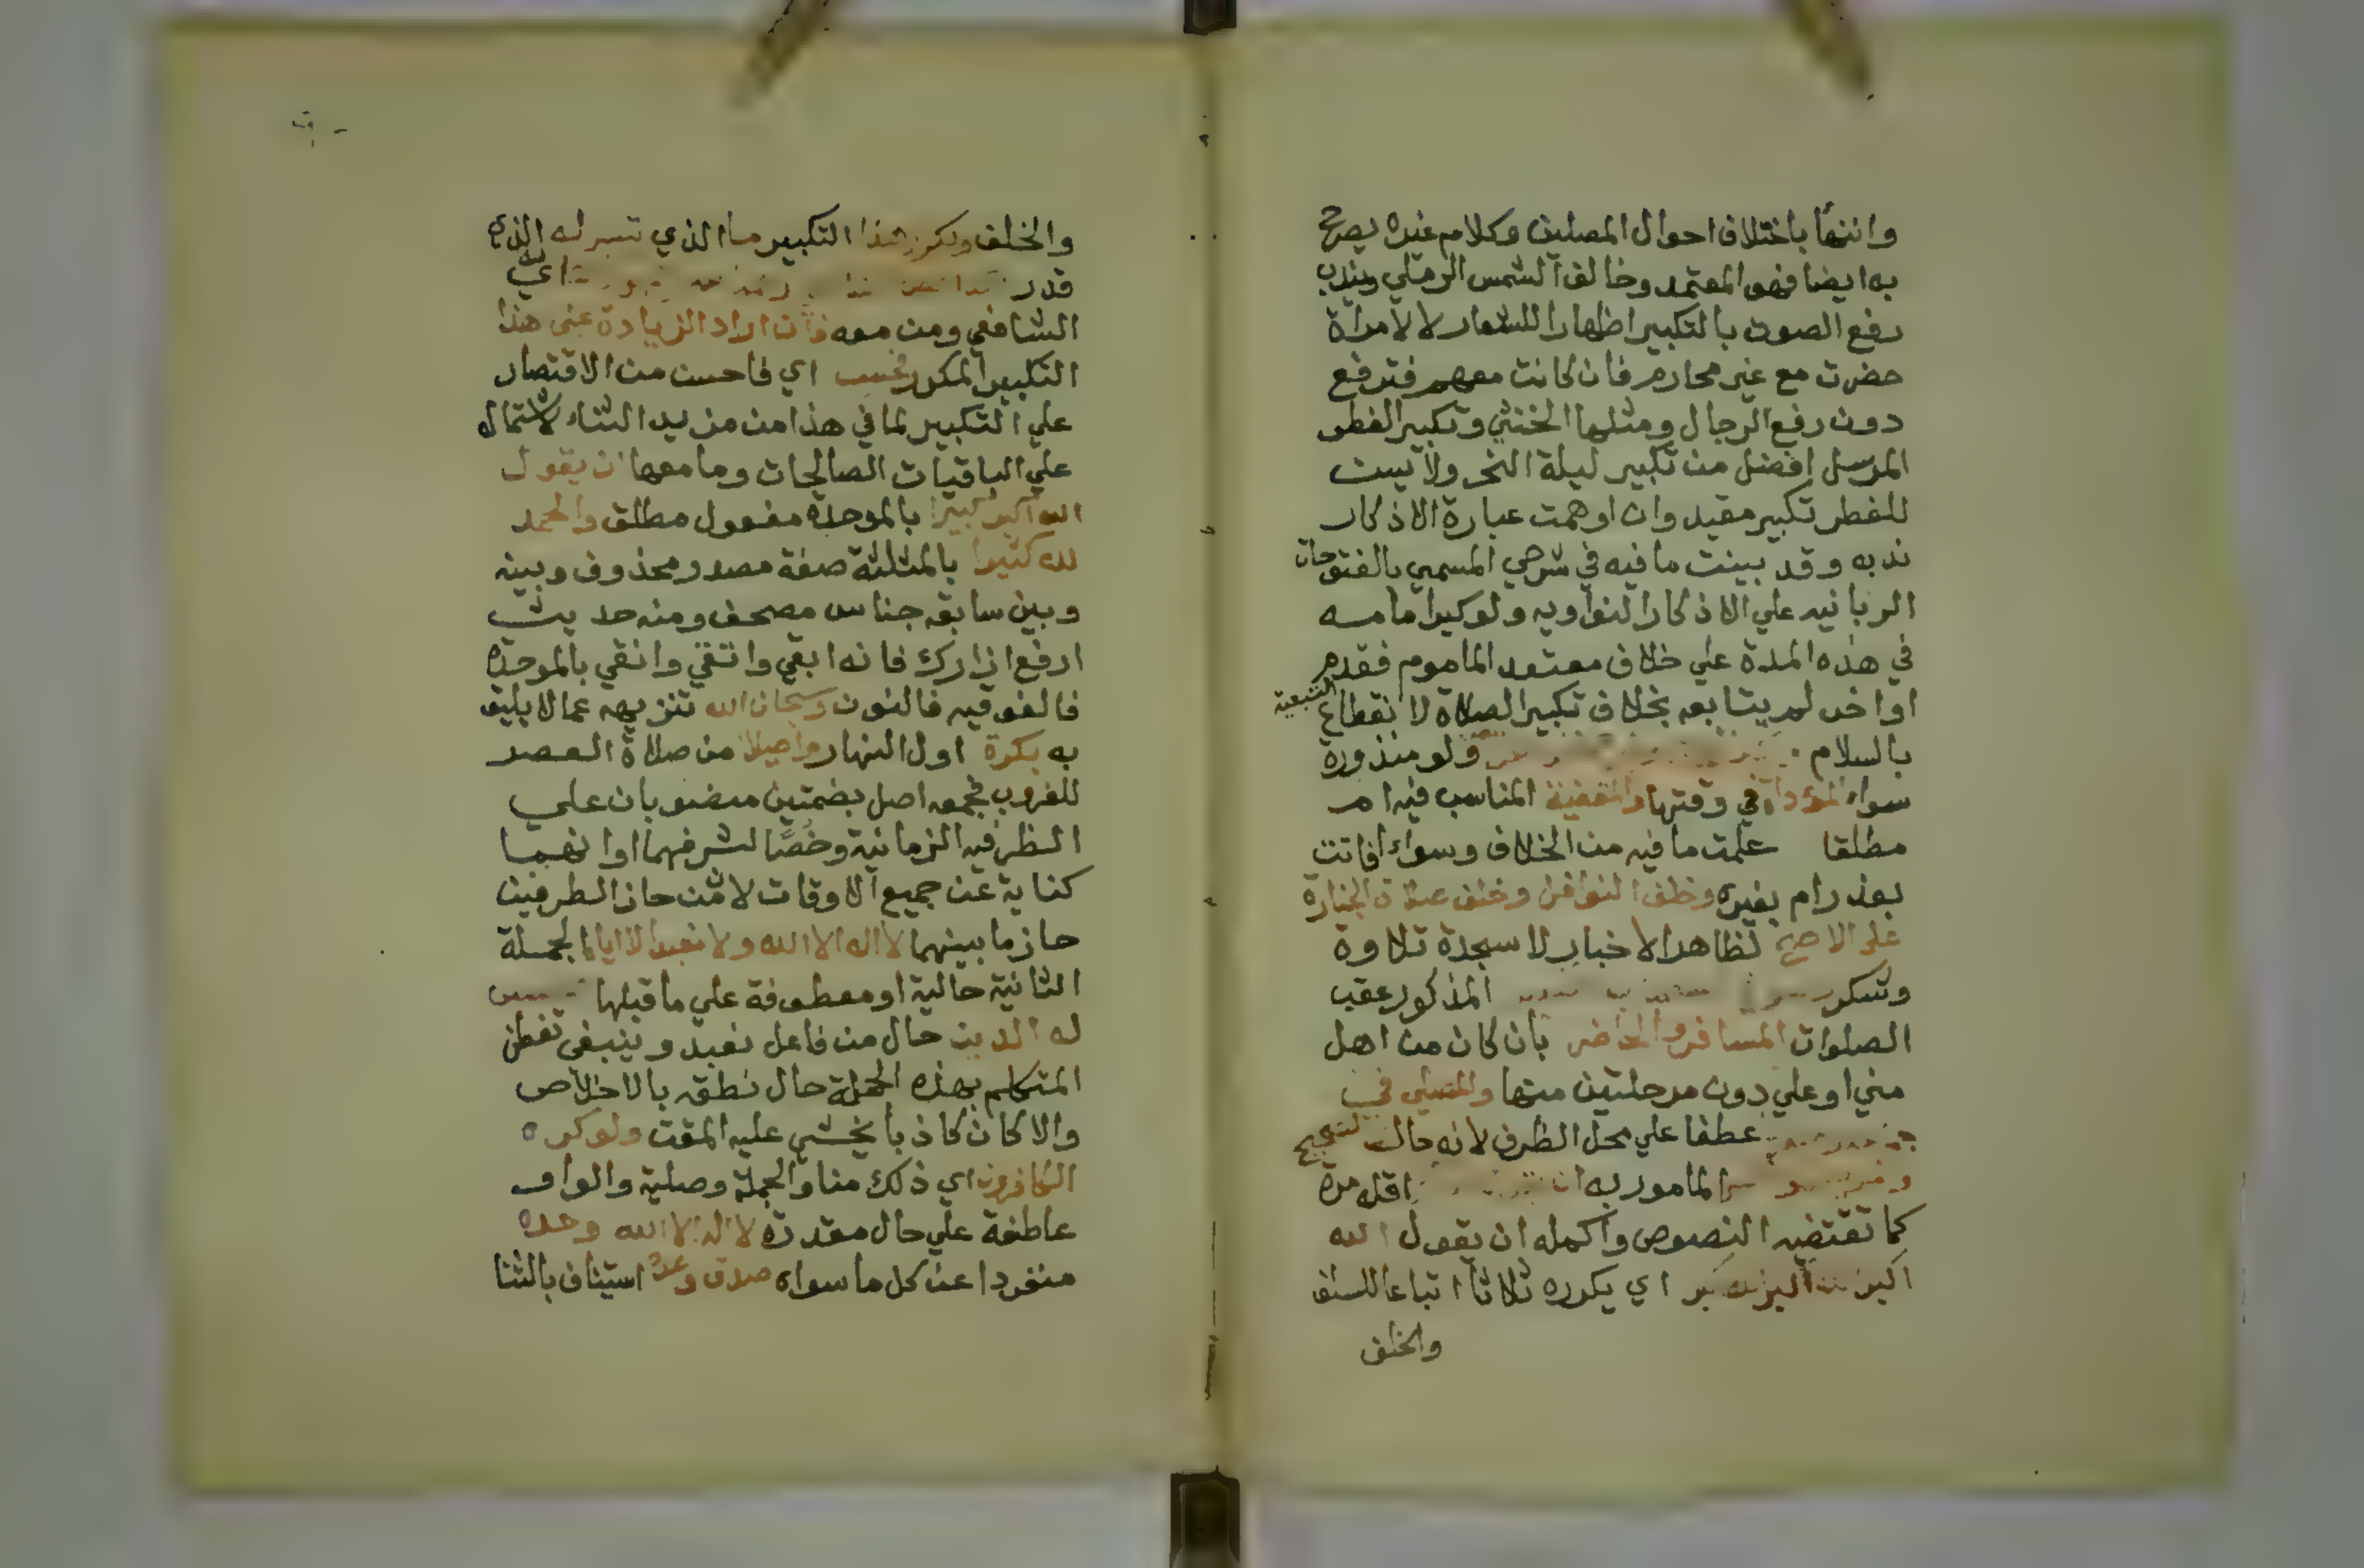 وانتها باختلاف احوال المصلين وكلام غيره يصرح
به ايضا فهو المعتمد وخالف الشمس الرملي ويندب
رفع الصوت بالتكبير اظهارا للشعار لا لامراة
حضرت مع غير محارم فان كانت معهم فترفع
دون رفع الرجال ومثلها الخنثي وتكبير الفطر
المرسل افضل من تكبير ليلة النحر ولا يسن
للفطر تكبير مقيد وان اوهمت عبارة الاذكار
ندبه وقد بينت ما فيه في شرحي المسمي بالفتوحات
الربانيه علي الاذكار النواويه ولو كبر امامه
في هذه المدة علي خلاف معتقد الماموم فقدم
او اخر لم يتابعه بخلاف تكبير الصلاة لانقطاع التبعية
بالسلام ولو منذورة
سواء المؤداة في وقتها والمقضية المناسب فيه ام
مطلقا علمت ما فيه من الخلاف وسواء افاتت
بعذر ام بغيره وخلف النوافل وخلف صلاة الجنازة
علي الاصح لظاهر الاخبار لا سجدة تلاوة
وشكر المذكور عقب
الصلوات المسافر والحاضر بان كان من اهل
مني او علي دون مرحلتين منها والمصلي في
عطفا علي محل الظرف لانه حال
المامور به ان اقله مرة
كما تقتضيه النصوص واكمله ان يقول الله
اكبر اي يكرره ثلاثا اتباعا للسلف
والخلف
والخلف ويكرر هذا التكبير ما الذي تيسر له الذي
قدر اي
الشافعي ومن معه فان اراد الزيادة علي هذا
التكبير المكرر فحسن اي فاحسن من الاقتصار
علي التكبير لما في هذا من مزيد الثناء لاشتماله
علي الباقيات الصالحات وما معها ان يقول
الله اكبر كبيرا بالموحدة مفعول مطلق والحمد
لله كثيرا بالمثلثة صفة مصدر محذوف وبينه
وبين سابقه جناس مصحف ومنه حديث
ارفع ازارك فانه ابقي واتقي وانقي بالموحدة
فالفوقيه فالنون وسبحان الله تنزيهه عما لا يليق
به بكرة اول النهار واصيلا من صلاة العصر
للغروب جمعه اصل بضمتين منصوبان علي
الظرفيه الزمانية وخصا لشرفهما او انهما
كناية عن جميع الاوقات لان من حاز الطرفين
حاز ما بينهما لا اله الا الله ولا نعبد الا اياه الجملة
الثانية حالية او معطوفة علي ما قبلها
له الدين حال من فاعل نعبد وينبغي تفطن
المتكلم بهذه الجملة حال نطقه بالاخلاص
والا كان كاذبا يخشي عليه المقت ولو كره
الكافرون اي ذلك منا والجملة وصلية والواو
عاطفة علي حال مقدرة لا اله الا الله وحده
منفردا عن كل ما سواه صدق وعده استيناف بالثنا